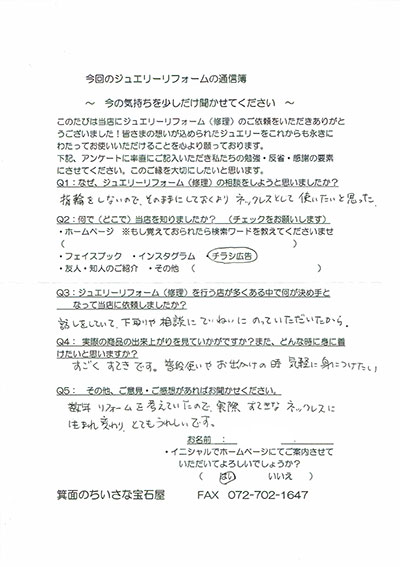 今回のジュエリーリフォームの通信簿
～ 今の気持ちを少しだけ聞かせてください ～
このたびは当店にジュエリーリフォーム（修理）のご依頼をいただきありがと
うございました！皆さまの想いが込められたジュエリーをこれからも永きに
わたってお使いいただけることを心より願っております。
下記、アンケートに率直にご記入いただき私たちの勉強・反省・感謝の要素
にさせてください。このご縁を大切にしたいと思います。
Q1：なぜ、ジュエリーリフォーム（修理）の相談をしようと思いましたか？
指輪をしないので、そのままにしておくより ネックレスとして 使いたいと思った
Q2：何で（どこで）当店を知りましたか？ （チェックをお願いします）
・ホームページ ※もし覚えておられたら検索ワードを教えてくださいませ
（ ）
・フェイスブック ・インスタグラム ・チラシ広告
・友人・知人のご紹介 ・その他 （ ）
Q3：ジュエリーリフォーム（修理）を行う店が多くある中で何が決め手と
なって当店に依頼しましたか？
話しをしていて、下取りや 相談に ていねいに のっていただいたから。
Q4： 実際の商品の出来上がりを見ていかがですか？また、どんな時に身に着
けたいと思いますか？
すごく すてきです。普段使いや お出かけの時 気軽に身につけたい
Q5： その他、ご意見・ご感想があればお聞かせください。
数年 リフォームを考えていたので、実際 すてきな ネックレスに
生まれ変わり、とてもうれしいです。
お名前 ： .
・イニシャルでホームページにてご案内させて
いただいてよろしいでしょうか？
（ はい いいえ ）
箕面のちいさな宝石屋 FAX 072-702-1647